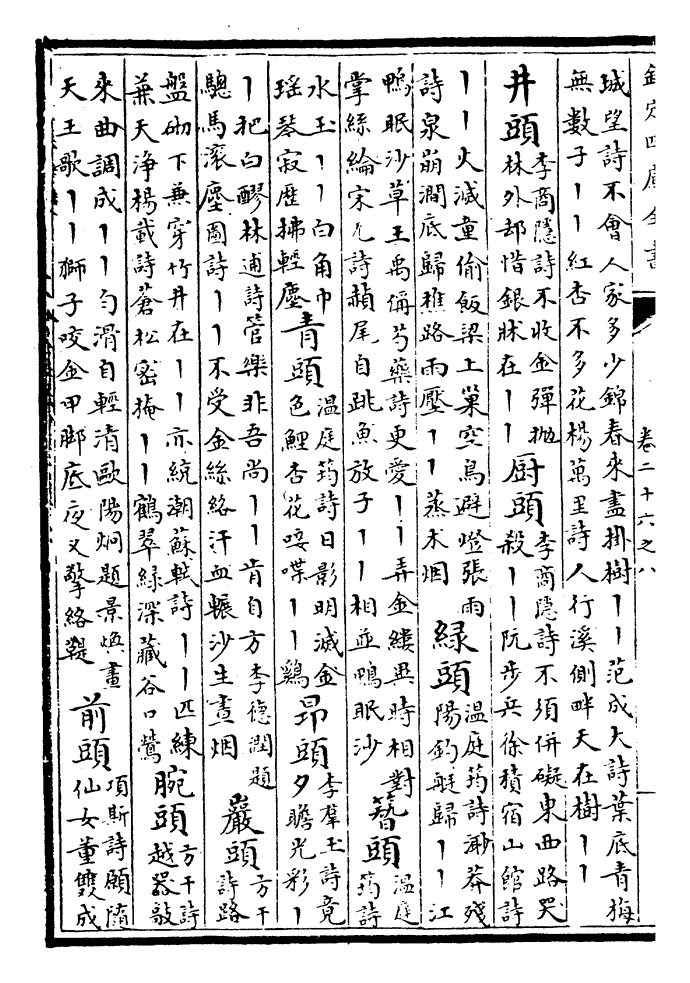 欽定四庫全書
卷二十六之八
城望詩不會人家多少錦春來盡掛樹丨丨范成大詩葉底青梅
無數子丨丨紅杏不多花楊萬里詩人行溪側畔天在樹丨丨
井頭
李商隱詩不收金彈抛
林外却惜銀牀在丨丨
厨頭
李商隱詩不須併礙東西路哭
殺丨丨阮步兵徐積宿山館詩
丨丨火滅童偷飯梁上巢空鳥避燈張雨
詩泉崩澗底歸樵路雨壓丨丨蒸术烟
緑頭
温庭筠詩渺莽殘
陽釣艇歸丨丨江
鴨眠沙草王禹偁芍藥詩更愛丨丨弄金縷異時相對
掌絲綸宋旡詩赬尾自跳魚放子丨丨相並鴨眠沙
簪頭
温庭
筠詩
水玉丨丨白角巾
瑶琴寂歴拂輕塵
青頭
温庭筠詩日影明滅金
色鯉杏花唼喋丨丨鷄
昂頭
李羣玉詩竟
夕瞻光彩丨
丨把白醪林逋詩管樂非吾尚丨丨肯自方李德潤題
驄馬滚塵圖詩丨丨不受金絲絡汗血輾沙生晝烟
巖頭
方干
詩路
盤砌下兼穿竹井在丨丨亦統潮蘇軾詩丨丨匹練
兼天浄楊載詩蒼松密掩丨丨鶴翠緑深藏谷口鶯
腕頭
方干詩
越器敲
來曲調成丨丨匀滑自輕清歐陽炯題景煥畫
天王歌丨丨獅子咬金甲脚底夜叉擎絡鞮
前頭
項斯詩願隨
仙女董雙成